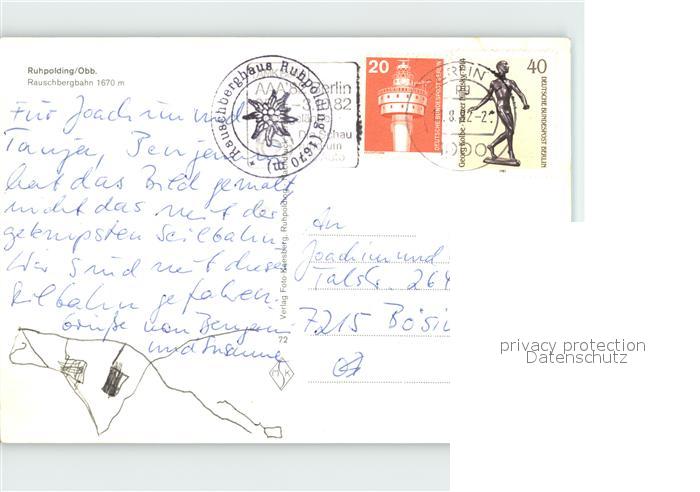 Ruhpolding/Obb.
Rauschbergbahn 1670 m
Für Joachim und
Tanja, Benjamin
hat das Bild gemalt
nicht das mit der
geknipsten Seilbahn.
Wir sind mit dieser
Seilbahn gefahren.
Grüße von Benjamin
und Susanne
Rauschberghaus Ruhpolding (1670 m)
Berlin
20
DEUTSCHE BUNDESPOST BERLIN
40
DEUTSCHE BUNDESPOST BERLIN
Verlag Foto
Ruhpolding
72
An
Joachim und
Talstr. 264
7215 Bösi
privacy protection
Datenschutz